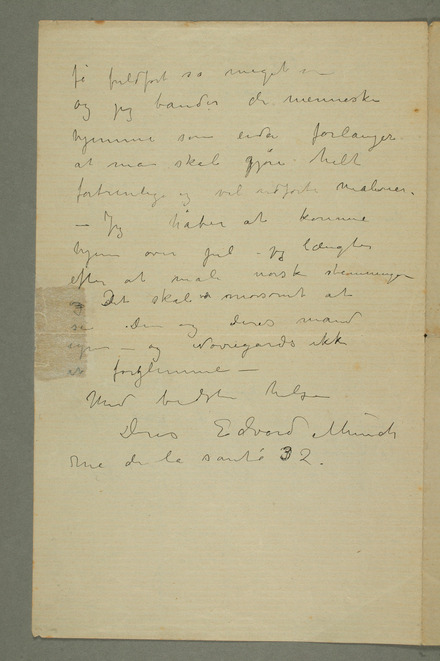 få fuldført så meget
og jeg bander de menneske
hjemme som endda forlanger
at man skal gjøre helt
fortrinlige og vel udførte malerier.
– Jeg håber at komme
hjem over jul – jeg længter
efter at male norske stemninger
Det skal morsomt at
se Dem og Deres mand
igen – og Novregårds ikke
at forglemme –
Med bedste hilsen
Deres Edvard Munch
rue de la santé 32.